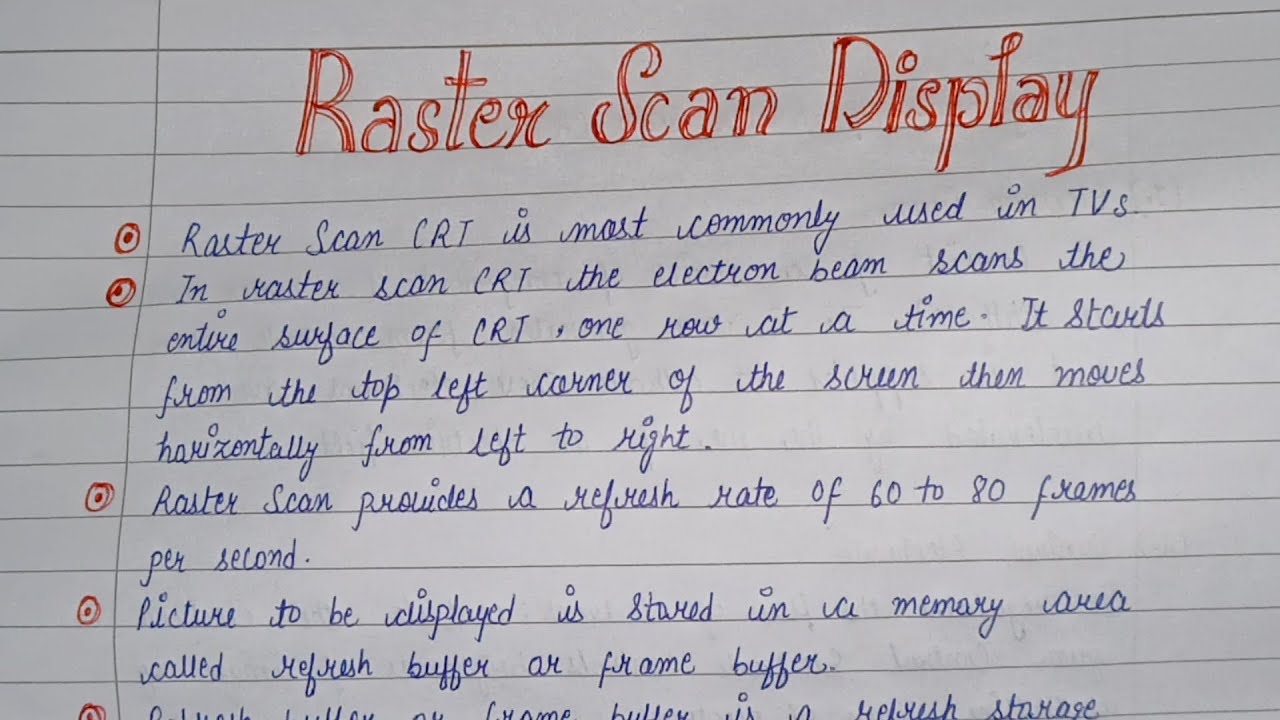 Raster Scan Display
Raster Scan CRT is most commonly used in TVs.
In raster scan CRT the electron beam scans the
entire surface of CRT, one row at a time. It starts
from the top left corner of the screen then moves
horizontally from left to right.
Raster Scan provides a refresh rate of 60 to 80 frames
per second.
Picture to be displayed is stored in a memory area
called refresh buffer or frame buffer.
Refresh buffer or frame buffer is a refresh storage